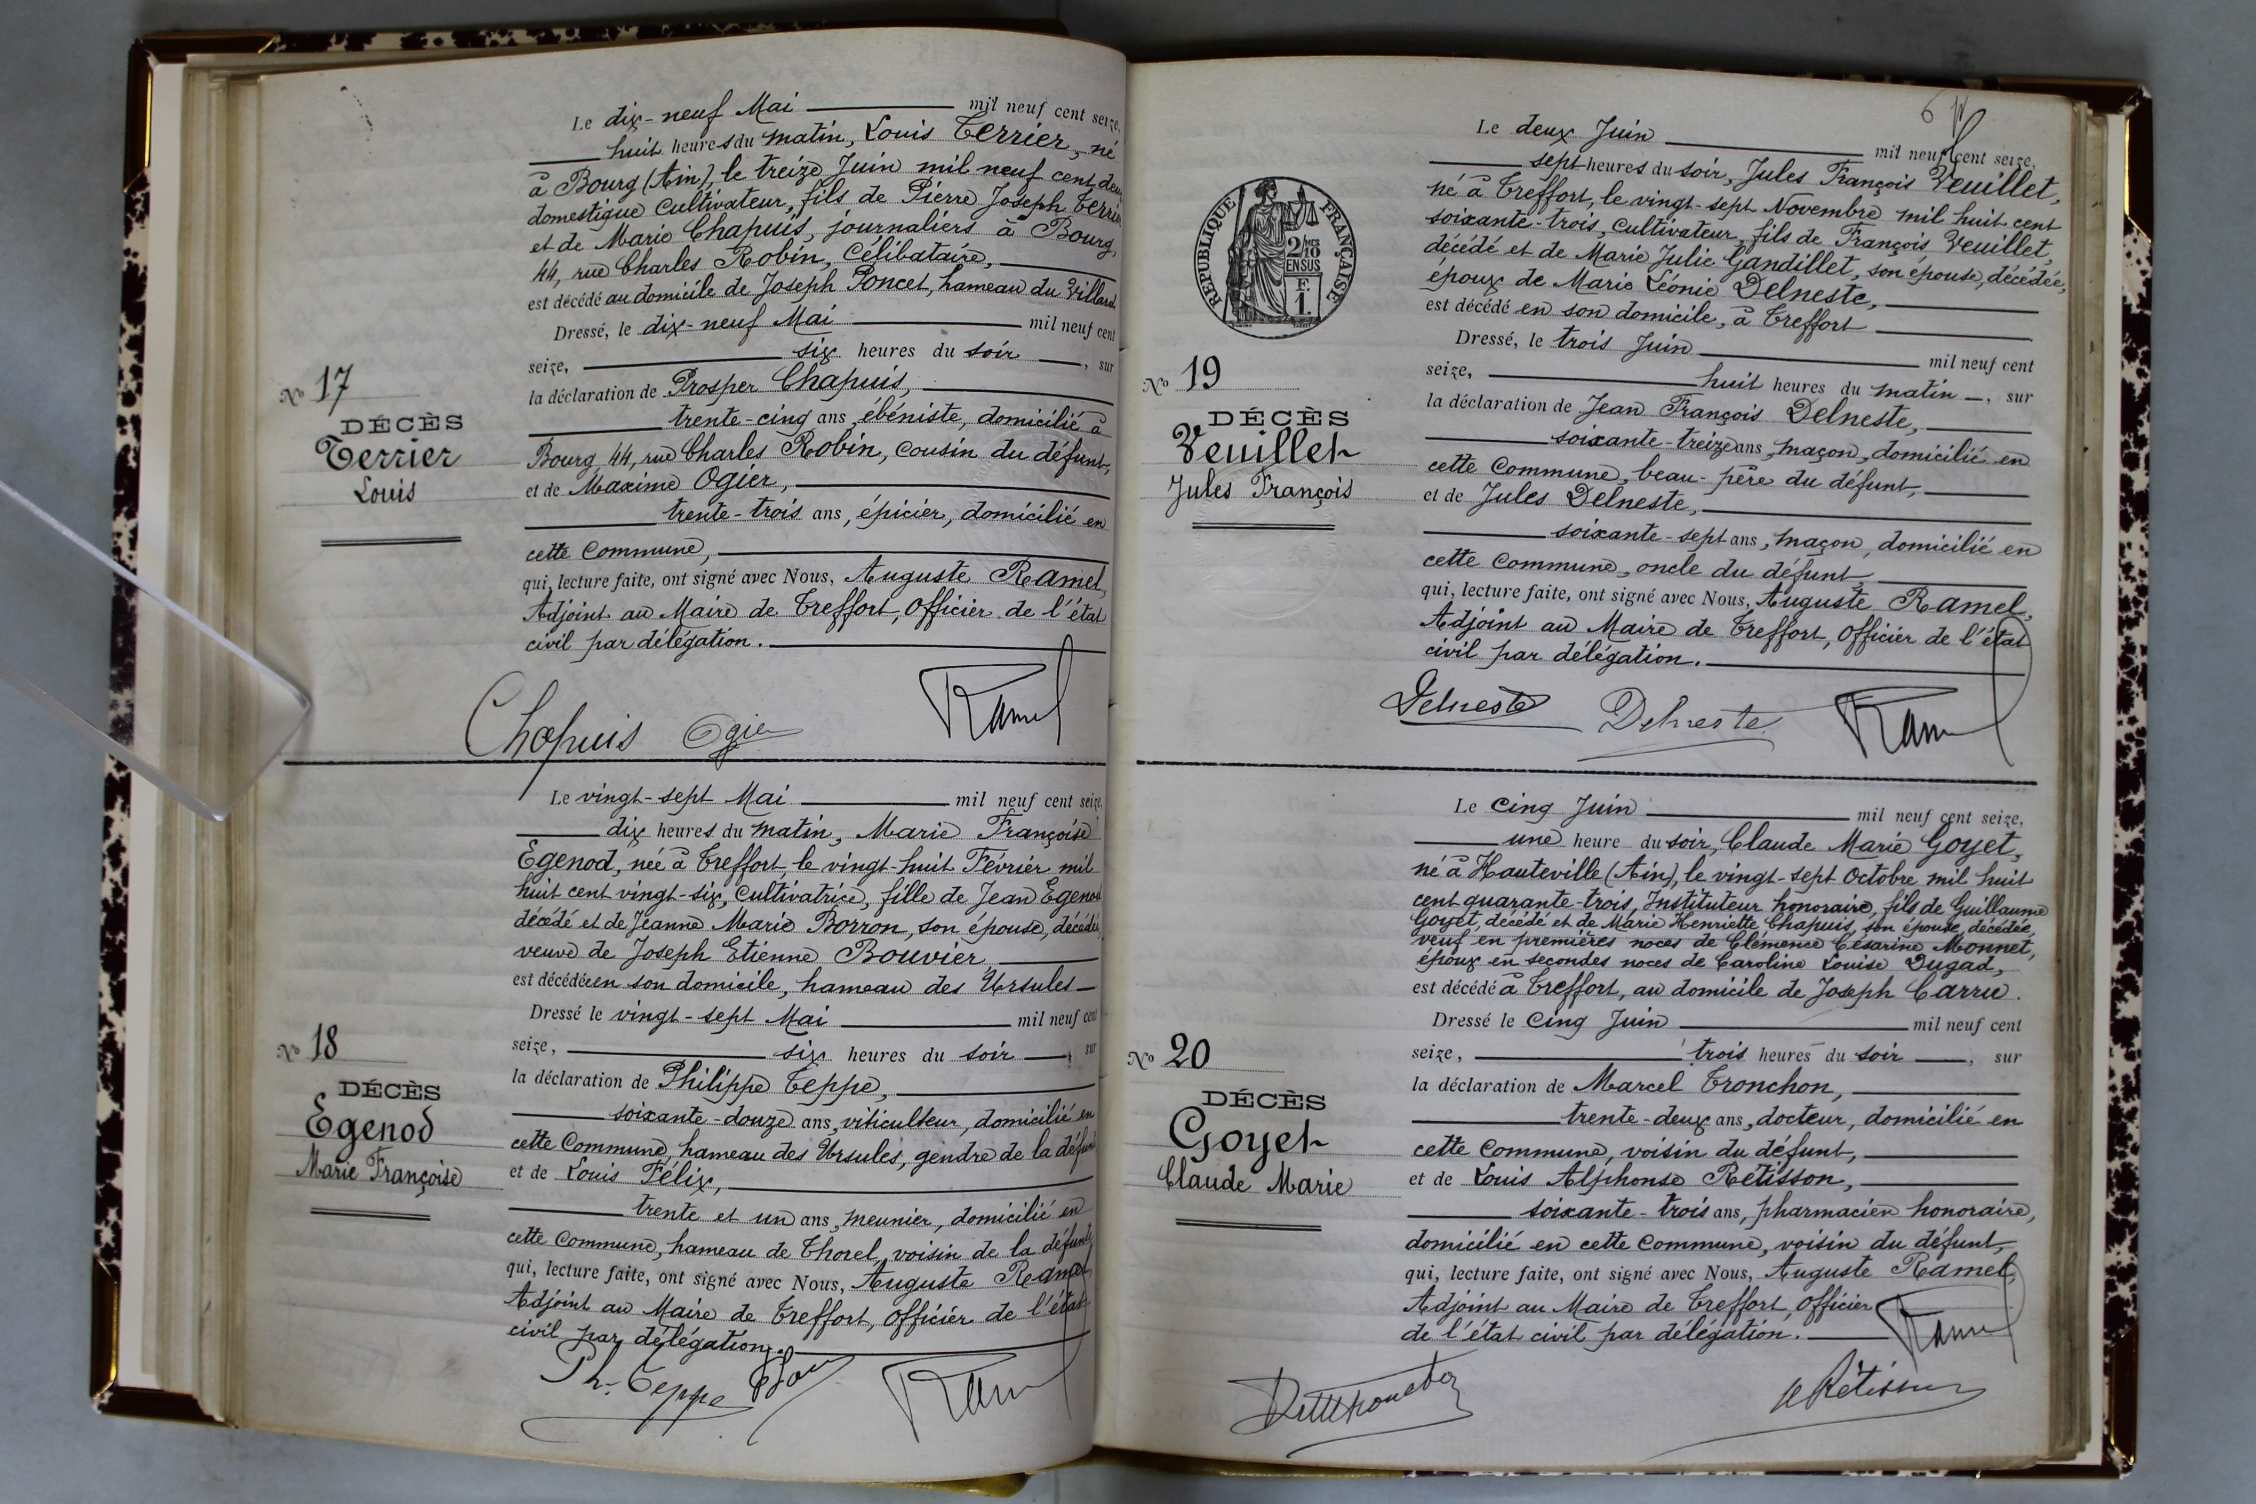 Le dix-neuf Mai mil neuf cent seize,
huit heures du matin, Louis Terrier, né
à Bourg (Ain), le treize Juin mil neuf cent deux
domestique cultivateur, fils de Pierre Joseph Terrier
et de Marie Chapuis, journaliers à Bourg,
44, rue Charles Robin, Célibataire,
est décédé au domicile de Joseph Poncet, hameau du Villard
Dressé, le dix-neuf Mai mil neuf cent
seize, six heures du soir, sur
la déclaration de Prosper Chapuis,
trente-cinq ans, ébéniste, domicilié à
Bourg, 44, rue Charles Robin, cousin du défunt,
et de Maxime Ogier,
trente-trois ans, épicier, domicilié en
cette Commune,
qui, lecture faite, ont signé avec Nous, Auguste Ramel,
Adjoint au Maire de Treffort, Officier de l'état
civil par délégation.
No 17
DÉCÈS
Terrier
Louis
Chapuis Ogier Ramel
Le vingt-sept Mai mil neuf cent seize,
dix heures du matin, Marie Françoise
Egenod, née à Treffort, le vingt-huit Février mil
huit cent vingt-six, Cultivatrice, fille de Jean Egenod
décédé et de Jeanne Marie Borron, son épouse, décédée
veuve de Joseph Etienne Bouvier,
est décédée en son domicile, hameau des Ursules
Dressé le vingt-sept Mai mil neuf cent
seize, six heures du soir, sur
la déclaration de Philippe Teppe,
soixante-douze ans, viticulteur, domicilié en
cette Commune, hameau des Ursules, gendre de la défunte
et de Louis Félix,
trente et un ans, meunier, domicilié en
cette Commune, hameau de Thorel, voisin de la défunte,
qui, lecture faite, ont signé avec Nous, Auguste Ramel
Adjoint au Maire de Treffort, Officier de l'état
civil par délégation.
No 18
DÉCÈS
Egenod
Marie Françoise
Ph. Teppe Ramel
6
RÉPUBLIQUE FRANÇAISE
2/10 EN SUS
F. 1.
Le deux Juin mil neuf cent seize,
sept heures du soir, Jules François Veuillet,
né à Treffort, le vingt-sept Novembre mil huit cent
soixante-trois, cultivateur, fils de François Veuillet,
décédé et de Marie Julie Gandillet, son épouse, décédée,
époux de Marie Léonie Delneste,
est décédé en son domicile, à Treffort
Dressé, le trois Juin mil neuf cent
seize, huit heures du matin, sur
la déclaration de Jean François Delneste,
soixante-treize ans, maçon, domicilié en
cette Commune, beau-père du défunt,
et de Jules Delneste,
soixante-sept ans, maçon, domicilié en
cette Commune, oncle du défunt,
qui, lecture faite, ont signé avec Nous, Auguste Ramel,
Adjoint au Maire de Treffort, Officier de l'état
civil par délégation.
No 19
DÉCÈS
Veuillet
Jules François
Delneste Delneste Ramel
Le Cinq Juin mil neuf cent seize,
une heure du soir, Claude Marie Goyet,
né à Hauteville (Ain), le vingt-sept Octobre mil huit
cent quarante-trois, Instituteur honoraire, fils de Guillaume
Goyet, décédé et de Marie Henriette Chapuis, son épouse, décédée,
veuf en premières noces de Clémence Césarine Monnet,
époux en secondes noces de Caroline Louise Dugad,
est décédé à Treffort, au domicile de Joseph Carru.
Dressé le Cinq Juin mil neuf cent
seize, trois heures du soir, sur
la déclaration de Marcel Tronchon,
trente-deux ans, docteur, domicilié en
cette Commune, voisin du défunt,
et de Louis Alphonse Rétisson,
soixante-trois ans, pharmacien honoraire,
domicilié en cette Commune, voisin du défunt,
qui, lecture faite, ont signé avec Nous, Auguste Ramel,
Adjoint au Maire de Treffort, Officier
de l'état civil par délégation.
No 20
DÉCÈS
Goyet
Claude Marie
Ramel
Rétisson